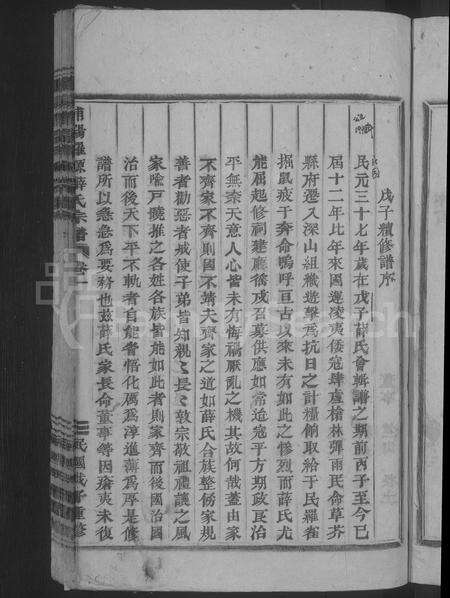 戊子續修譜序
民元三十七年歲在戊子薛氏會輯譜之期前丙子至今已
屆十二年比年來國運凌夷倭寇肆虐槍林彈雨民命草芥
縣府遷入深山組織遊擊為抗日之計糧餉取給于民羅雀
掘鼠疲于奔命嗚呼亘古以來未有如此之慘烈而薛氏尤
能屆起修祠建廳徵戍召募供應如常迨寇平方期政良治
平無柰天意人心皆未有悔禍厭亂之機其故何哉蓋由家
不齊家不齊則國不靖夫齊家之道如薛氏合族整傷家規
善者勸惡者戒使子弟皆知親〻長〻敦宗敬祖禮讓之風
家喻戶曉推之各姓各族皆能如此者則家齊而後國治國
治而後天下平不軌者自能會悟化厲為淳進薄為厚是修
譜所以急急為要務也茲薛氏家長命董事等因瘡痍未復
浦陽羅源薛氏宗譜
卷
民國戊子重修